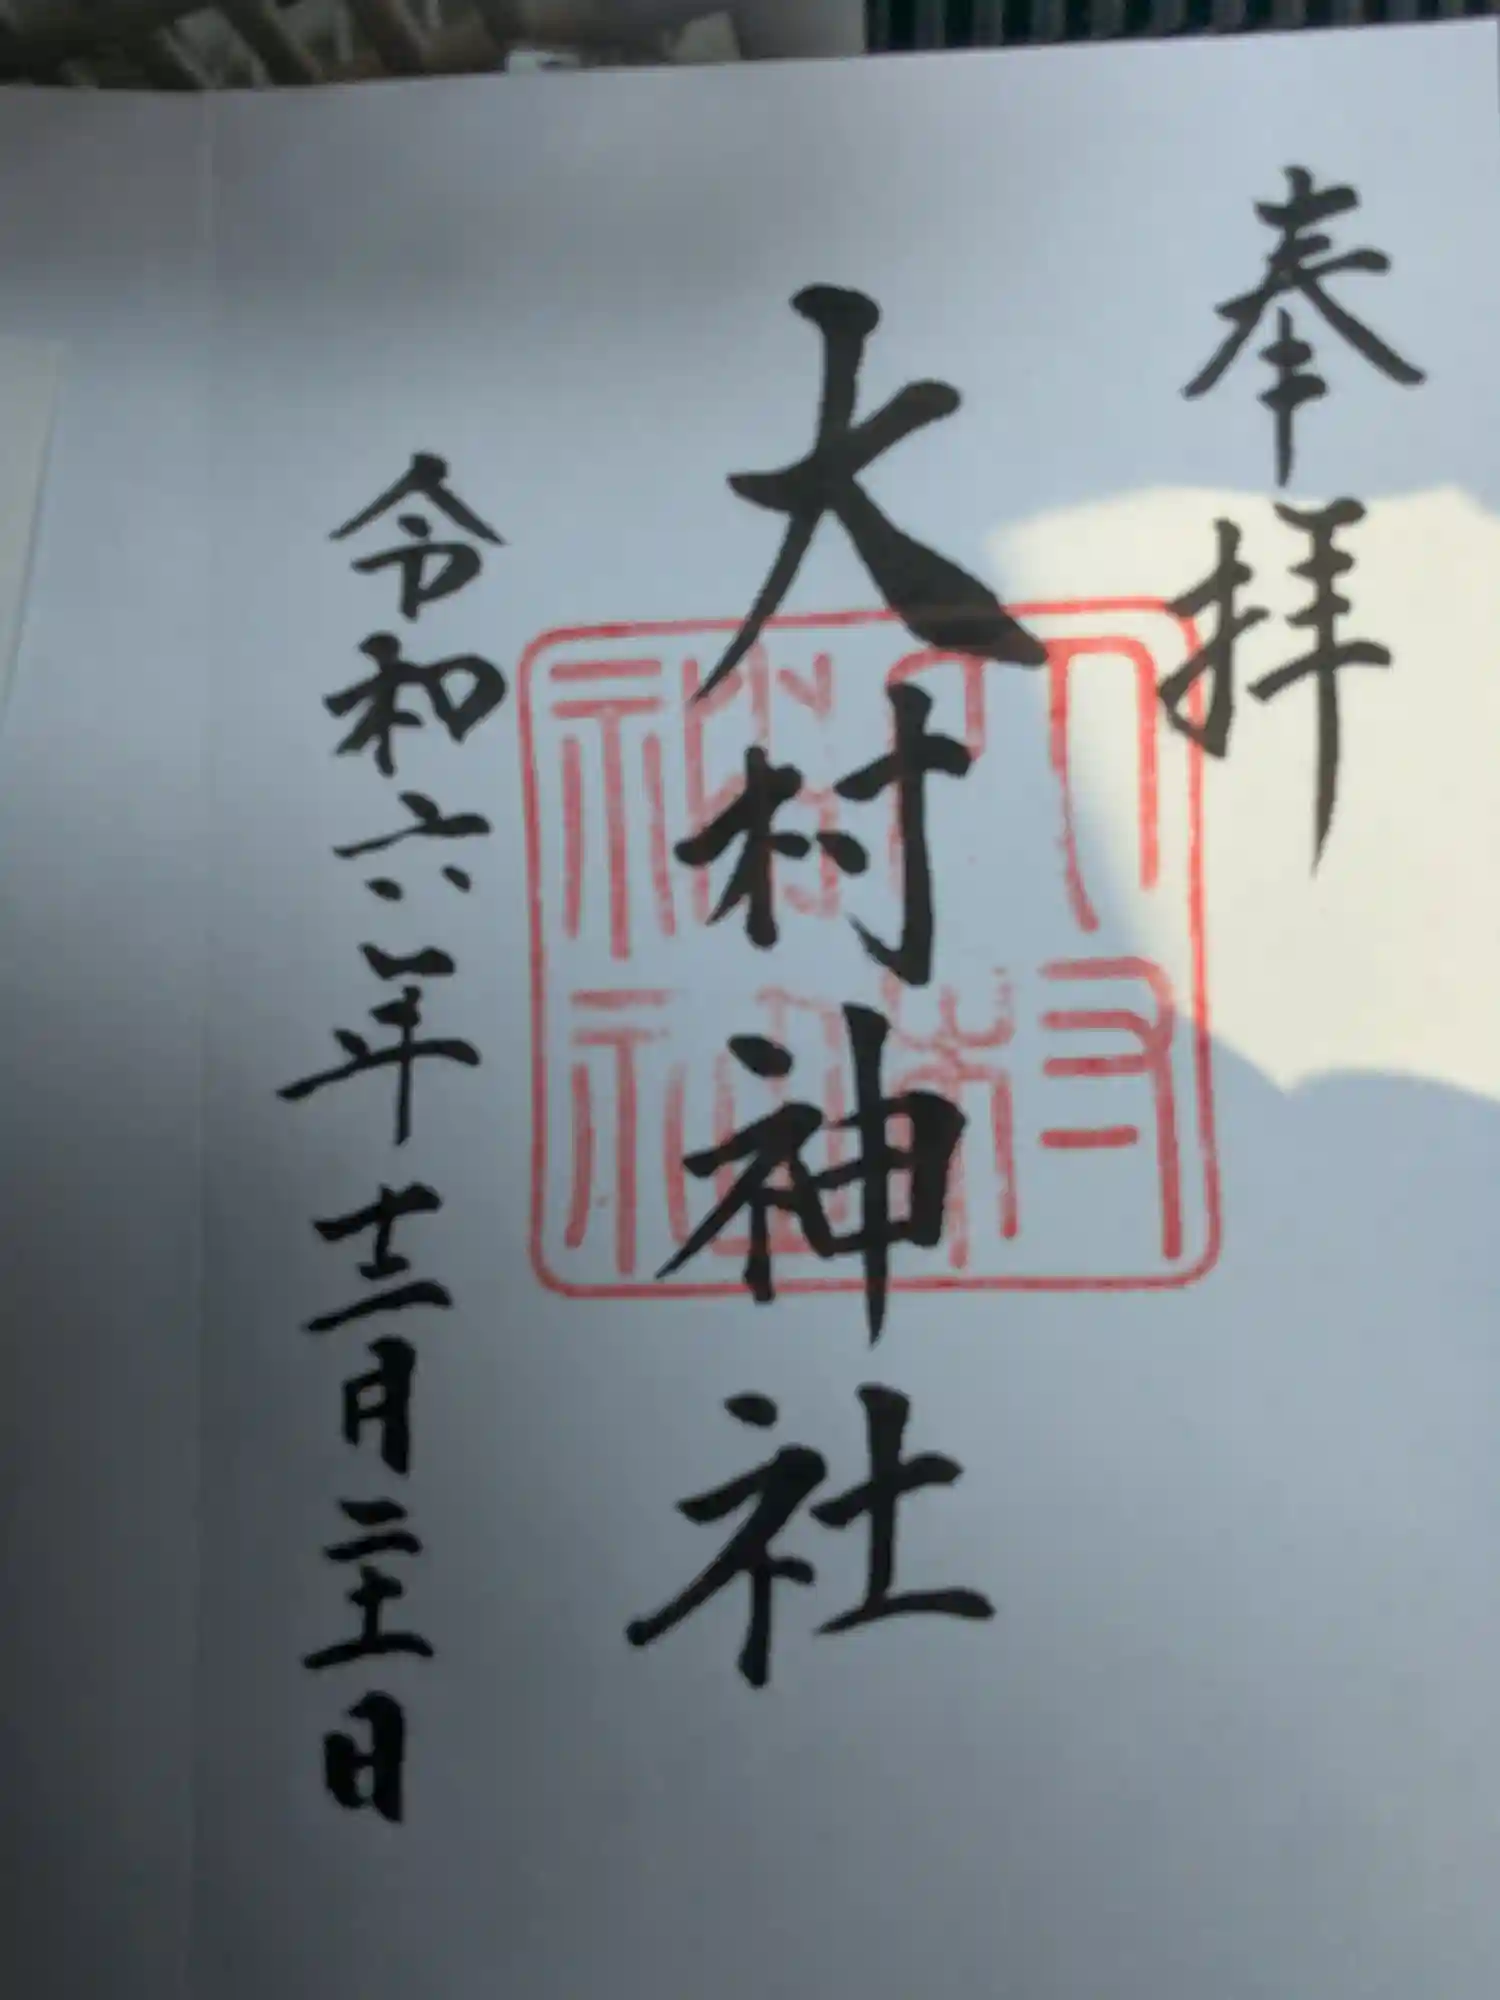 奉拝
大村神社
大村神社
令和六年十二月二十一日